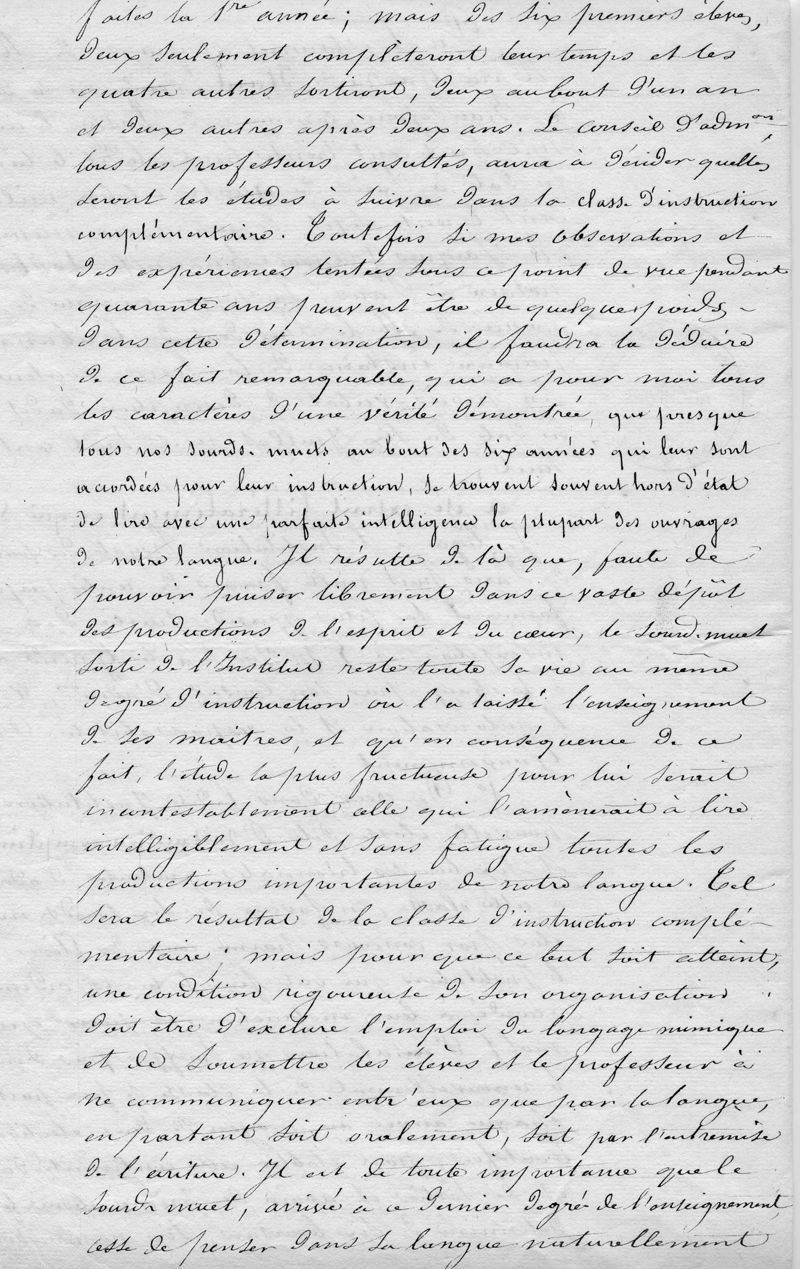 faites la 1re année ; mais des six premiers élèves,
deux seulement complèteront leur temps et les
quatre autres sortiront, deux au bout d'un an
et deux autres après deux ans. Le conseil d'admon,
tous les professeurs consultés, aura à décider quelles
seront les études à suivre dans la classe d'instruction
complémentaire. Toutefois si mes observations et
des expériences tentées sous ce point de vue pendant
quarante ans peuvent être de quelque poids
dans cette détermination, il faudra la déduire
de ce fait remarquable, qui a pour moi tous
les caractères d'une vérité démontrée, que presque
tous nos sourds-muets au bout des six années qui leur sont
accordées pour leur instruction, se trouvent souvent hors d'état
de lire avec une parfaite intelligence la plupart des ouvrages
de notre langue. Il résulte de là que, faute de
pouvoir puiser librement dans ce vaste dépôt
des productions de l'esprit et du cœur, le sourd-muet
sorti de l'Institut reste toute sa vie au même
degré d'instruction où l'a laissé l'enseignement
de ses maitres, et qu'en conséquence de ce
fait, l'étude la plus fructueuse pour lui serait
incontestablement celle qui l'amènerait à lire
intelligiblement et sans fatigue toutes les
productions importantes de notre langue. Tel
sera le résultat de la classe d'instruction complé-
mentaire ; mais pour que ce but soit atteint,
une condition rigoureuse de son organisation
doit être d'exclure l'emploi du langage mimique
et de soumettre les élèves et le professeur à
ne communiquer entr'eux que par la langue,
en partant soit oralement, soit par l'entremise
de l'écriture. Il est de toute importance que le
sourd-muet, arrivé à ce dernier degré de l'enseignement,
cesse de penser dans sa langue naturellement